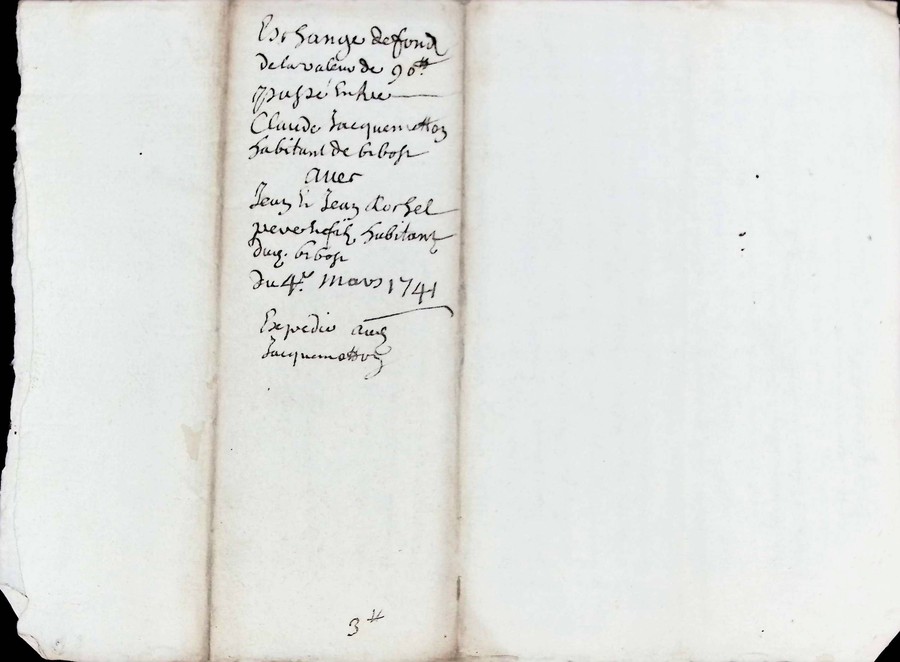 Eschange de fond
de la valeur de 90 ₶
passé entre
Claude Jacquemetton
habitant de bibost
avec
Jean & Jean Dorhel
pere & fils habitant
dud. bibost
du 4e. Mars 1741
Expedié aud
Jacquemetton
3 ₶